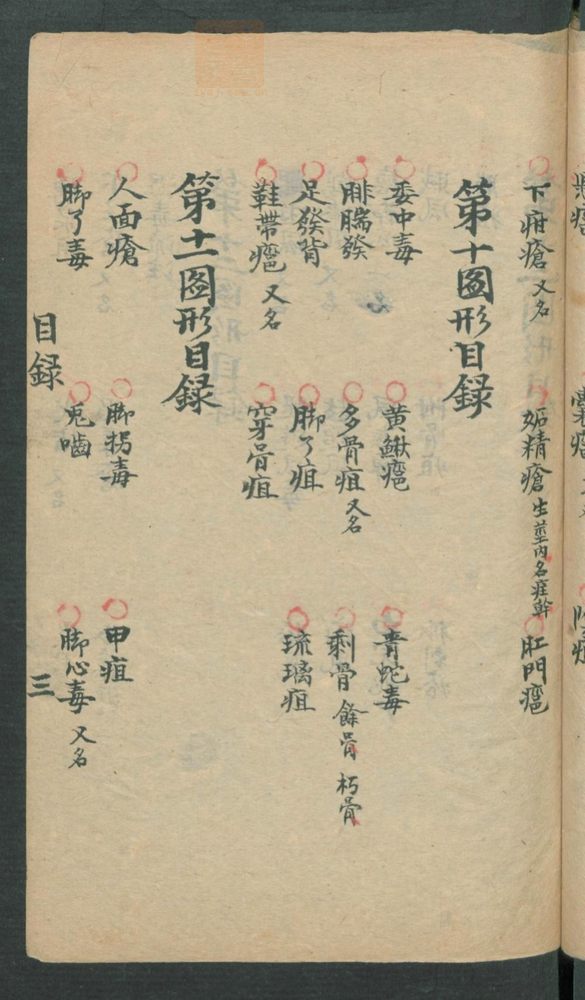 下疳瘡 又名 妬精瘡 生莖内名疰幹 肛門癰
第十图形目録
委中毒 黄鰍癰 青蛇毒
腓腨發 多骨疽 又名 剩骨 餘骨 朽骨
足發背 脚了疽 琉璃疽
鞋帶癰 又名 穿骨疽
第十一图形目録
人面瘡 脚拐毒 甲疽
脚了毒 兎嚙 脚心毒 又名
目録 三